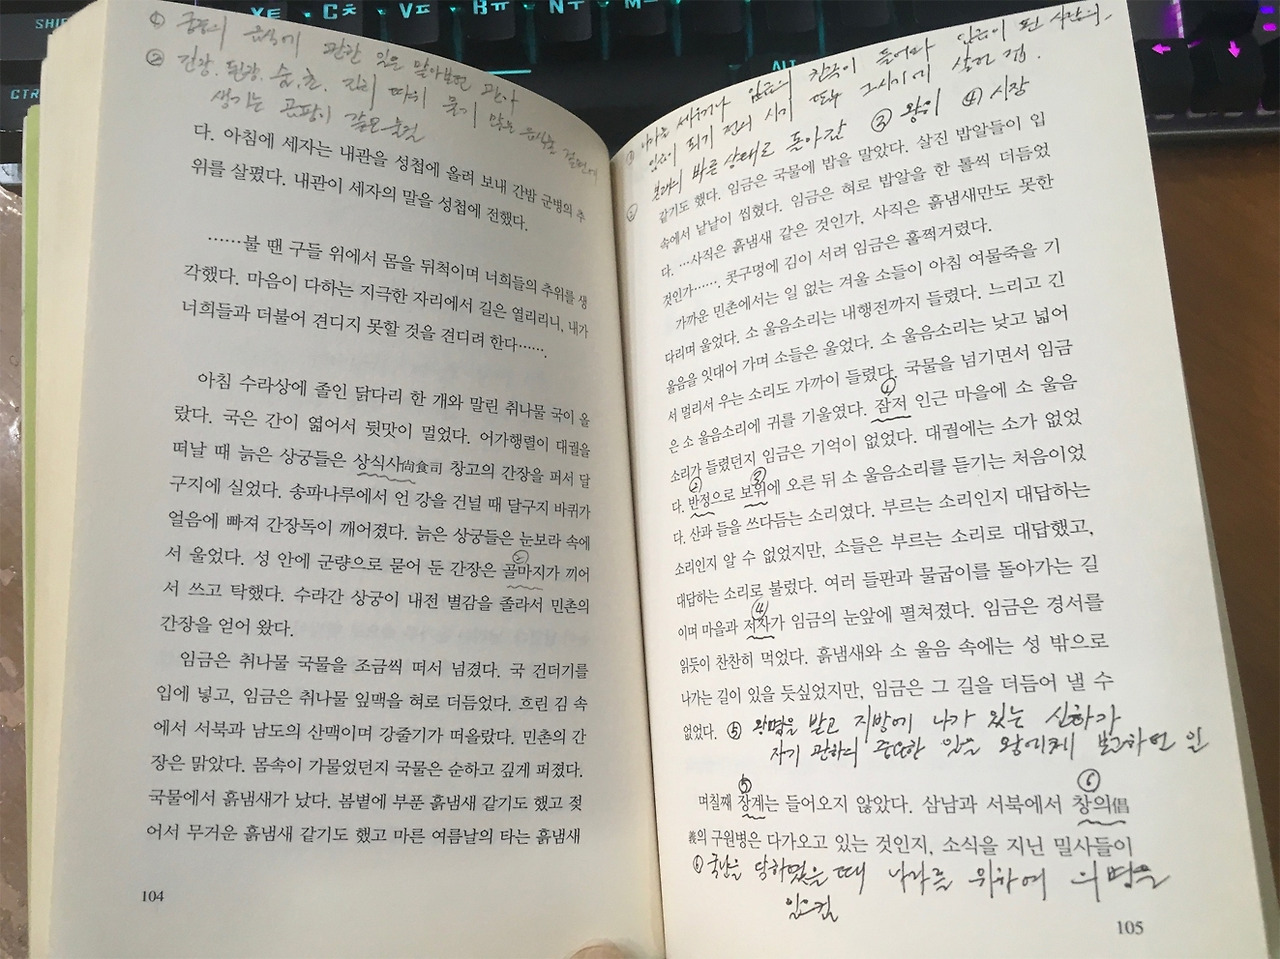 SHIF
CTR
Xㅌ
Cㅊ
Vㅍ
Bㅠ
Nㅜ
Mㅡ
ALT
① 궁중의 음식에 관한 일을 맡아보던 관아
② 간장, 된장, 술, 초, 김치 따위 물기 많은 음식물 겉면에
생기는 곰팡이 같은 물질
다. 아침에 세자는 내관을 성첩에 올려 보내 간밤 군병의 추
위를 살폈다. 내관이 세자의 말을 성첩에 전했다.
……불 땐 구들 위에서 몸을 뒤척이며 너희들의 추위를 생
각했다. 마음이 다하는 지극한 자리에서 길은 열리리니, 내가
너희들과 더불어 견디지 못할 것을 견디려 한다…….
아침 수라상에 졸인 닭다리 한 개와 말린 취나물 국이 올
랐다. 국은 간이 엷어서 뒷맛이 멀었다. 어가행렬이 대궐을
떠날 때 늙은 상궁들은 상식사尙食司 창고의 간장을 퍼서 달
구지에 실었다. 송파나루에서 언 강을 건널 때 달구지 바퀴가
얼음에 빠져 간장독이 깨어졌다. 늙은 상궁들은 눈보라 속에
서 울었다. 성 안에 군량으로 묻어 둔 간장은 골마지가 끼어
②
서 쓰고 탁했다. 수라간 상궁이 내전 별감을 졸라서 민촌의
간장을 얻어 왔다.
임금은 취나물 국물을 조금씩 떠서 넘겼다. 국 건더기를
입에 넣고, 임금은 취나물 잎맥을 혀로 더듬었다. 흐린 김 속
에서 서북과 남도의 산맥이며 강줄기가 떠올랐다. 민촌의 간
장은 맑았다. 몸속이 가물었던지 국물은 순하고 깊게 퍼졌다.
국물에서 흙냄새가 났다. 봄볕에 부푼 흙냄새 같기도 했고 젖
어서 무거운 흙냄새 같기도 했고 마른 여름날의 타는 흙냄새
104
① 나라를 세우거나 임금의 친족이 들어와 임금이 된 사람의
임금이 되기 전의 시기 또는 그 시기에 살던 집.
② 본래의 바른 상태로 돌아감 ③ 왕위 ④ 시장
같기도 했다. 임금은 국물에 밥을 말았다. 살진 밥알들이 입
속에서 낱낱이 씹혔다. 임금은 혀로 밥알을 한 톨씩 더듬었
다. …사직은 흙냄새 같은 것인가, 사직은 흙냄새만도 못한
것인가……. 콧구멍에 김이 서려 임금은 훌쩍거렸다.
가까운 민촌에서는 일 없는 겨울 소들이 아침 여물죽을 기
다리며 울었다. 소 울음소리는 내행전까지 들렸다. 느리고 긴
울음을 잇대어 가며 소들은 울었다. 소 울음소리는 낮고 넓어
서 멀리서 우는 소리도 가까이 들렸다. 국물을 넘기면서 임금
은 소 울음소리에 귀를 기울였다. 잠저 인근 마을에 소 울음
①
소리가 들렸던지 임금은 기억이 없었다. 대궐에는 소가 없었
② ③
다. 반정으로 보위에 오른 뒤 소 울음소리를 듣기는 처음이었
다. 산과 들을 쓰다듬는 소리였다. 부르는 소리인지 대답하는
소리인지 알 수 없었지만, 소들은 부르는 소리로 대답했고,
대답하는 소리로 불렀다. 여러 들판과 물굽이를 돌아가는 길
④
이며 마을과 저자가 임금의 눈앞에 펼쳐졌다. 임금은 경서를
읽듯이 찬찬히 먹었다. 흙냄새와 소 울음 속에는 성 밖으로
나가는 길이 있을 듯싶었지만, 임금은 그 길을 더듬어 낼 수
없었다. ⑤ 왕명을 받고 지방에 나가 있는 신하가
자기 관하의 중요한 일을 왕에게 보고하던 일
⑤ ⑥
며칠째 장계는 들어오지 않았다. 삼남과 서북에서 창의倡
義의 구원병은 다가오고 있는 것인지, 소식을 지닌 밀사들이
⑥ 국난을 당하였을 때 나라를 위하여 의병을
일으킴
105